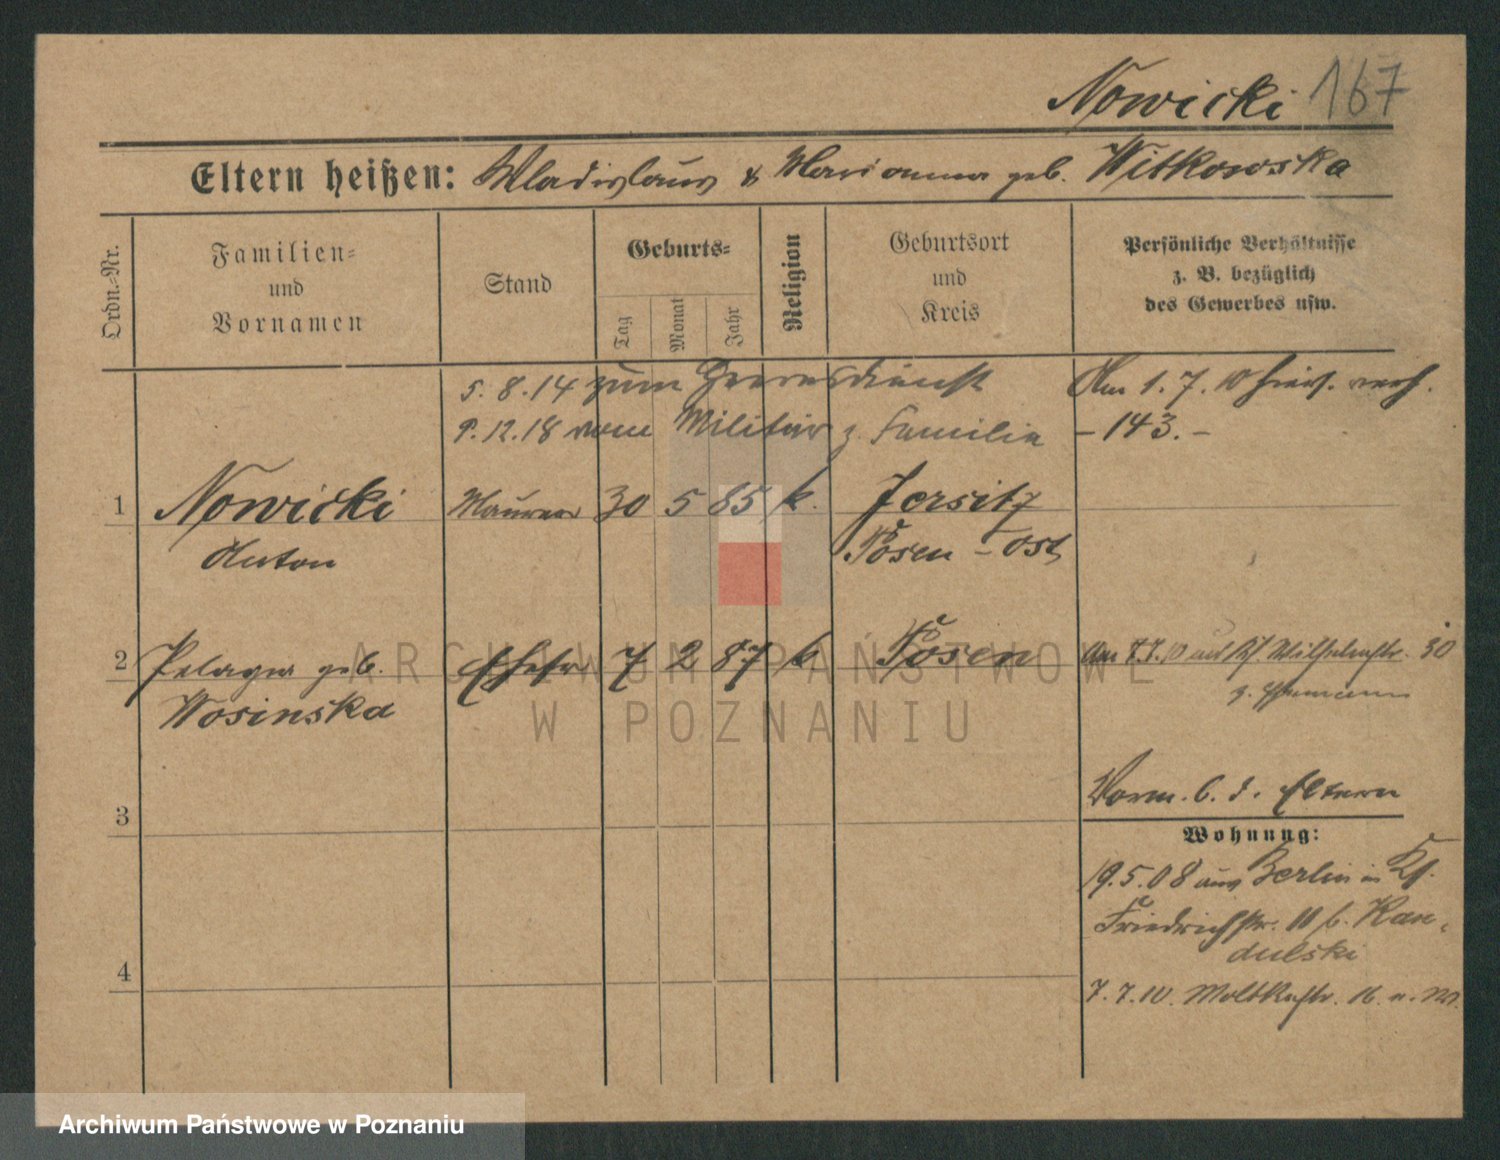 Nowicki 167
Eltern heißen: Wladislaus & Marianna geb. Witkowska
Ordn.-Nr.
Familien- und Vornamen
Stand
Geburts-
Tag
Monat
Jahr
Religion
Geburtsort und Kreis
Persönliche Verhältnisse
z. B. bezüglich
des Gewerbes usw.
5. 8. 14 zum Heeresdienst
9. 12. 18 vom Militär z. Familie
Am 1. 7. 10 hier. verh.
- 143. -
1 Nowicki Maurer 30 5 85 k. Jersitz
Anton Posen - Ost
2 Pelagia geb. Ehefr 7 2 87 k Posen
Wosinska
Am 7.7.10 Wilhelmstr. 30
3
Vorm. b. d. Eltern
Wohnung:
19.5.08 aus Berlin in
Friedrichstr. 11 b. Kan-
dulski
4
7. 7. 10. Moltkestr. 16.
ARCHIWUM PAŃSTWOWE
W POZNANIU
Archiwum Państwowe w Poznaniu